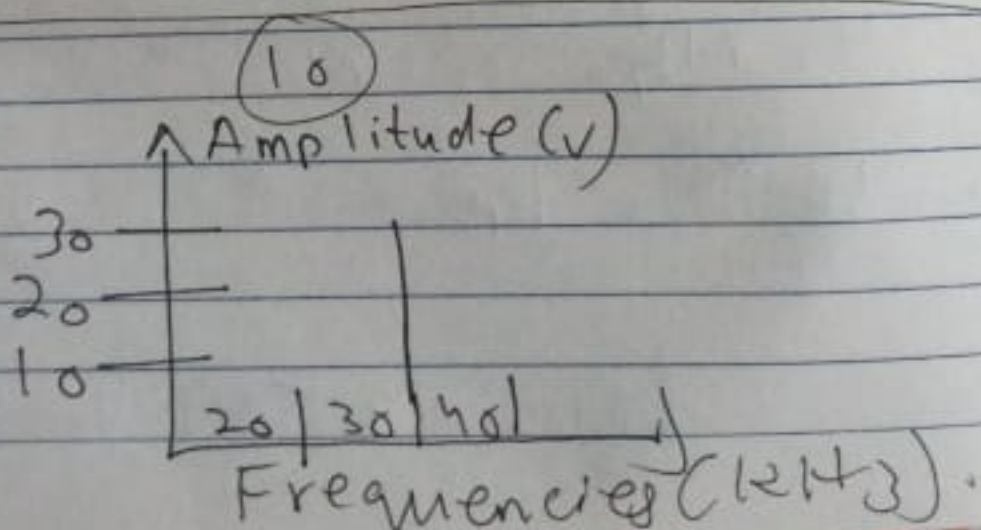 10
Amplitude (v)
30
20
10
20 30 40
Frequencies (KHz).